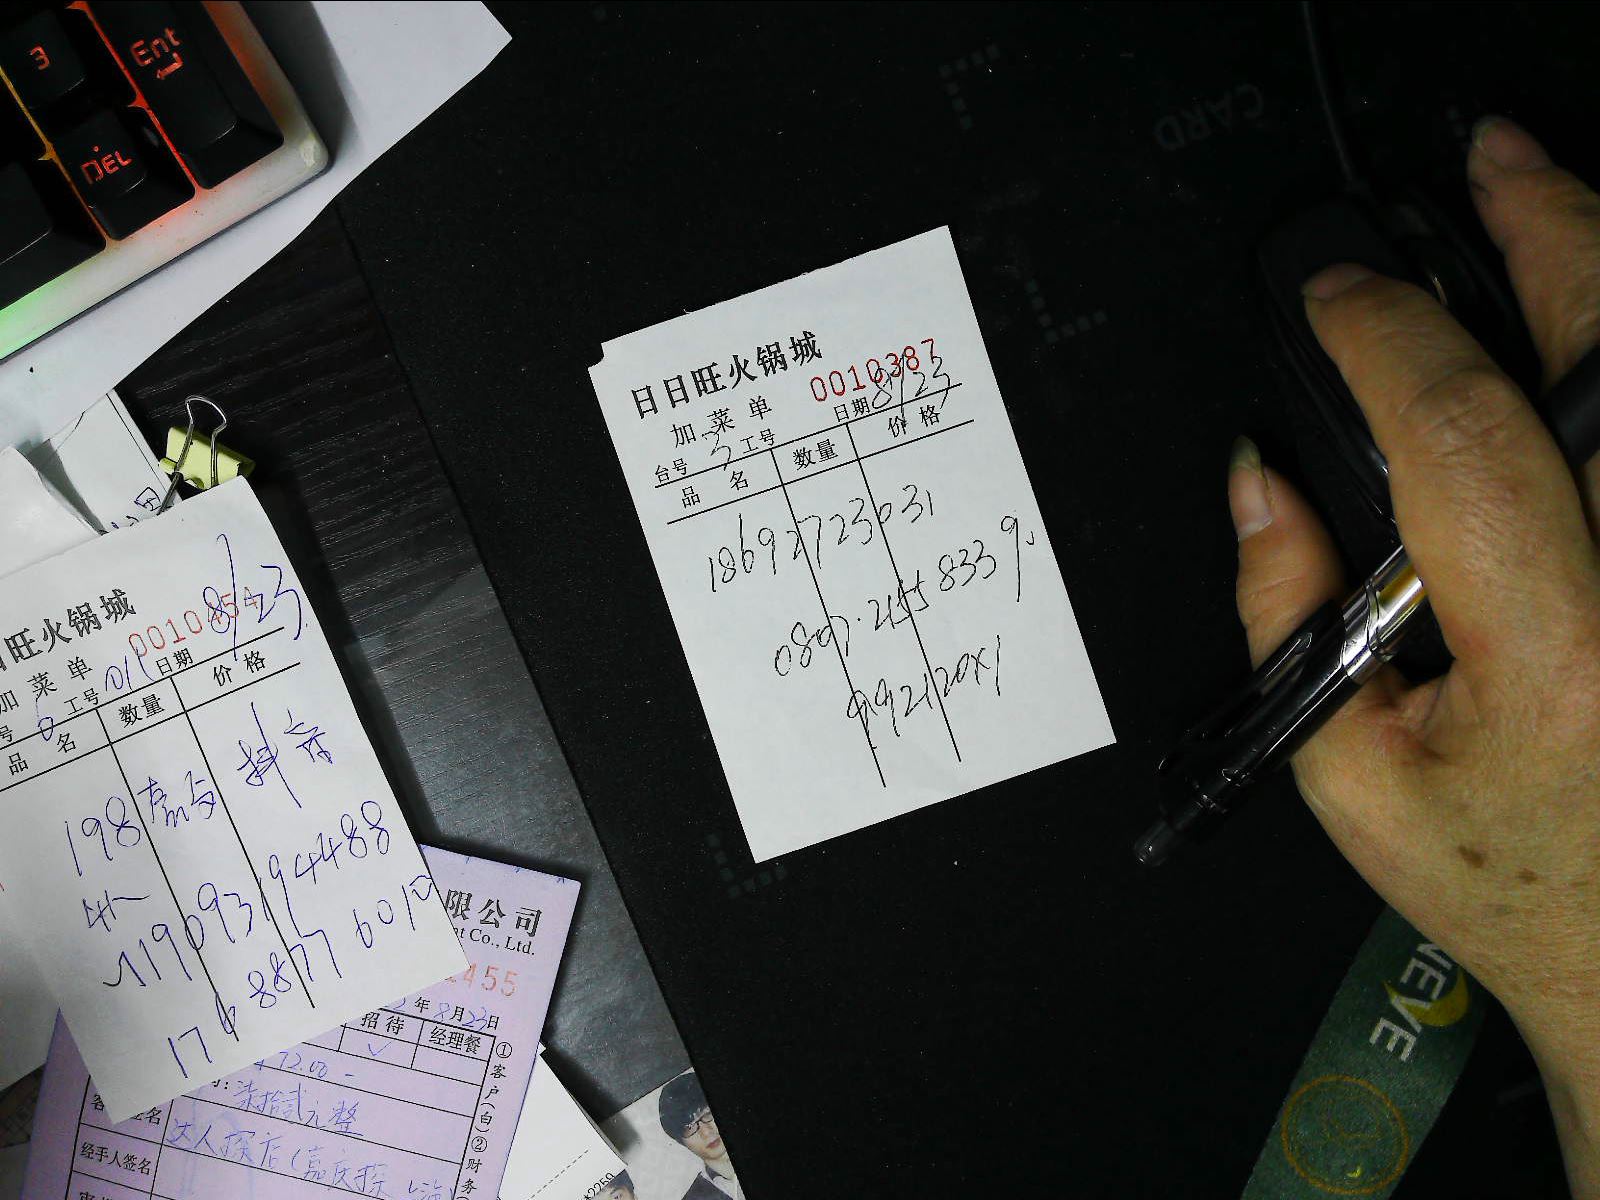 3
Ent
DEL
CARD
日日旺火锅城
0010387
加菜单
日期 8/23
台号 工号
品名 数量 价格
18692723031
833 9.
日旺火锅城
0010454
加菜单
日期 8/23.
号 6 工号 011
品名 数量 价格
198 抖音
19093194488
176 8877 6010
限公司
nt Co., Ltd.
455
年8月23日
招待 经理餐
✓
72.00 -
柒拾贰元整
签名
达人探店(嘉庆探
经手人签名
①客户(白)②财务
NEVE